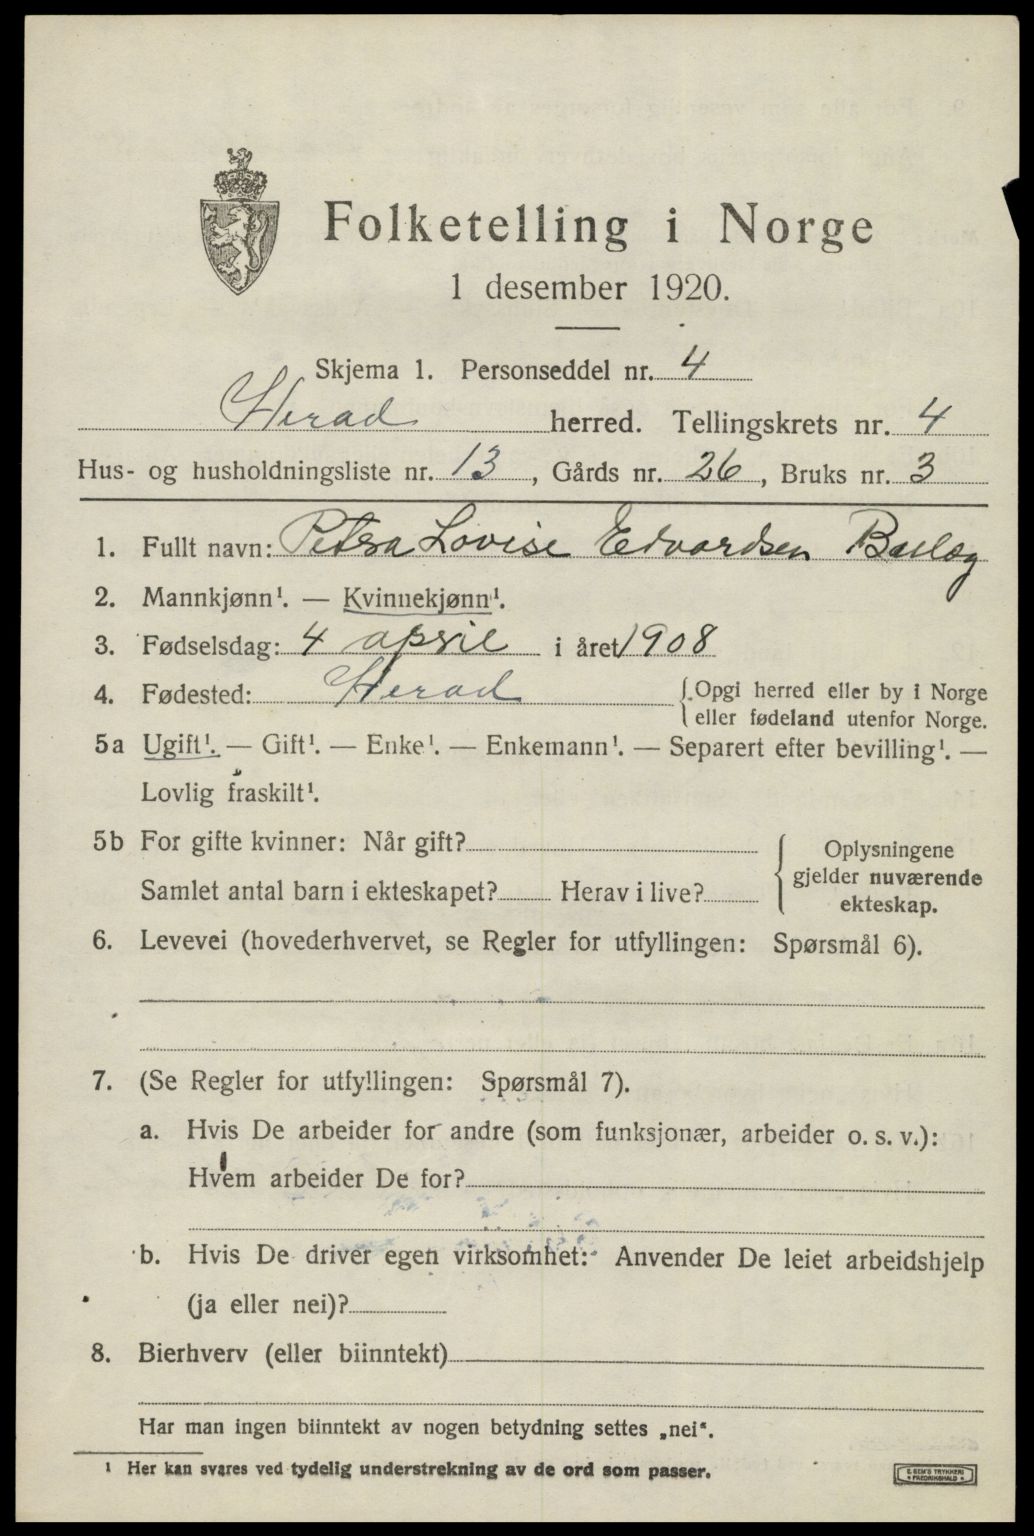 Folketelling i Norge
1 desember 1920.
Skjema 1. Personseddel nr. 4
Herad herred. Tellingskrets nr. 4
Hus- og husholdningsliste nr. 13, Gårds nr. 26, Bruks nr. 3
1. Fullt navn: Petra Lovise Edvardsen
2. Mannkjønn¹. — Kvinnekjønn¹.
3. Fødselsdag: 4 april i året 1908
4. Fødested: Herad {Opgi herred eller by i Norge
eller fødeland utenfor Norge.
5a Ugift¹. — Gift¹. — Enke¹. — Enkemann¹. — Separert efter bevilling¹. —
Lovlig fraskilt¹.
5b For gifte kvinner: Når gift?
Samlet antal barn i ekteskapet? Herav i live?
{Oplysningene
gjelder nuværende
ekteskap.
6. Levevei (hovederhvervet, se Regler for utfyllingen: Spørsmål 6).
7. (Se Regler for utfyllingen: Spørsmål 7).
a. Hvis De arbeider for andre (som funksjonær, arbeider o. s. v.):
Hvem arbeider De for?
b. Hvis De driver egen virksomhet: Anvender De leiet arbeidshjelp
(ja eller nei)?
8. Bierhverv (eller biinntekt)
Har man ingen biinntekt av nogen betydning settes „nei".
¹ Her kan svares ved tydelig understrekning av de ord som passer.
E SEM'S TRYKKERI
FREDRIKSHALD